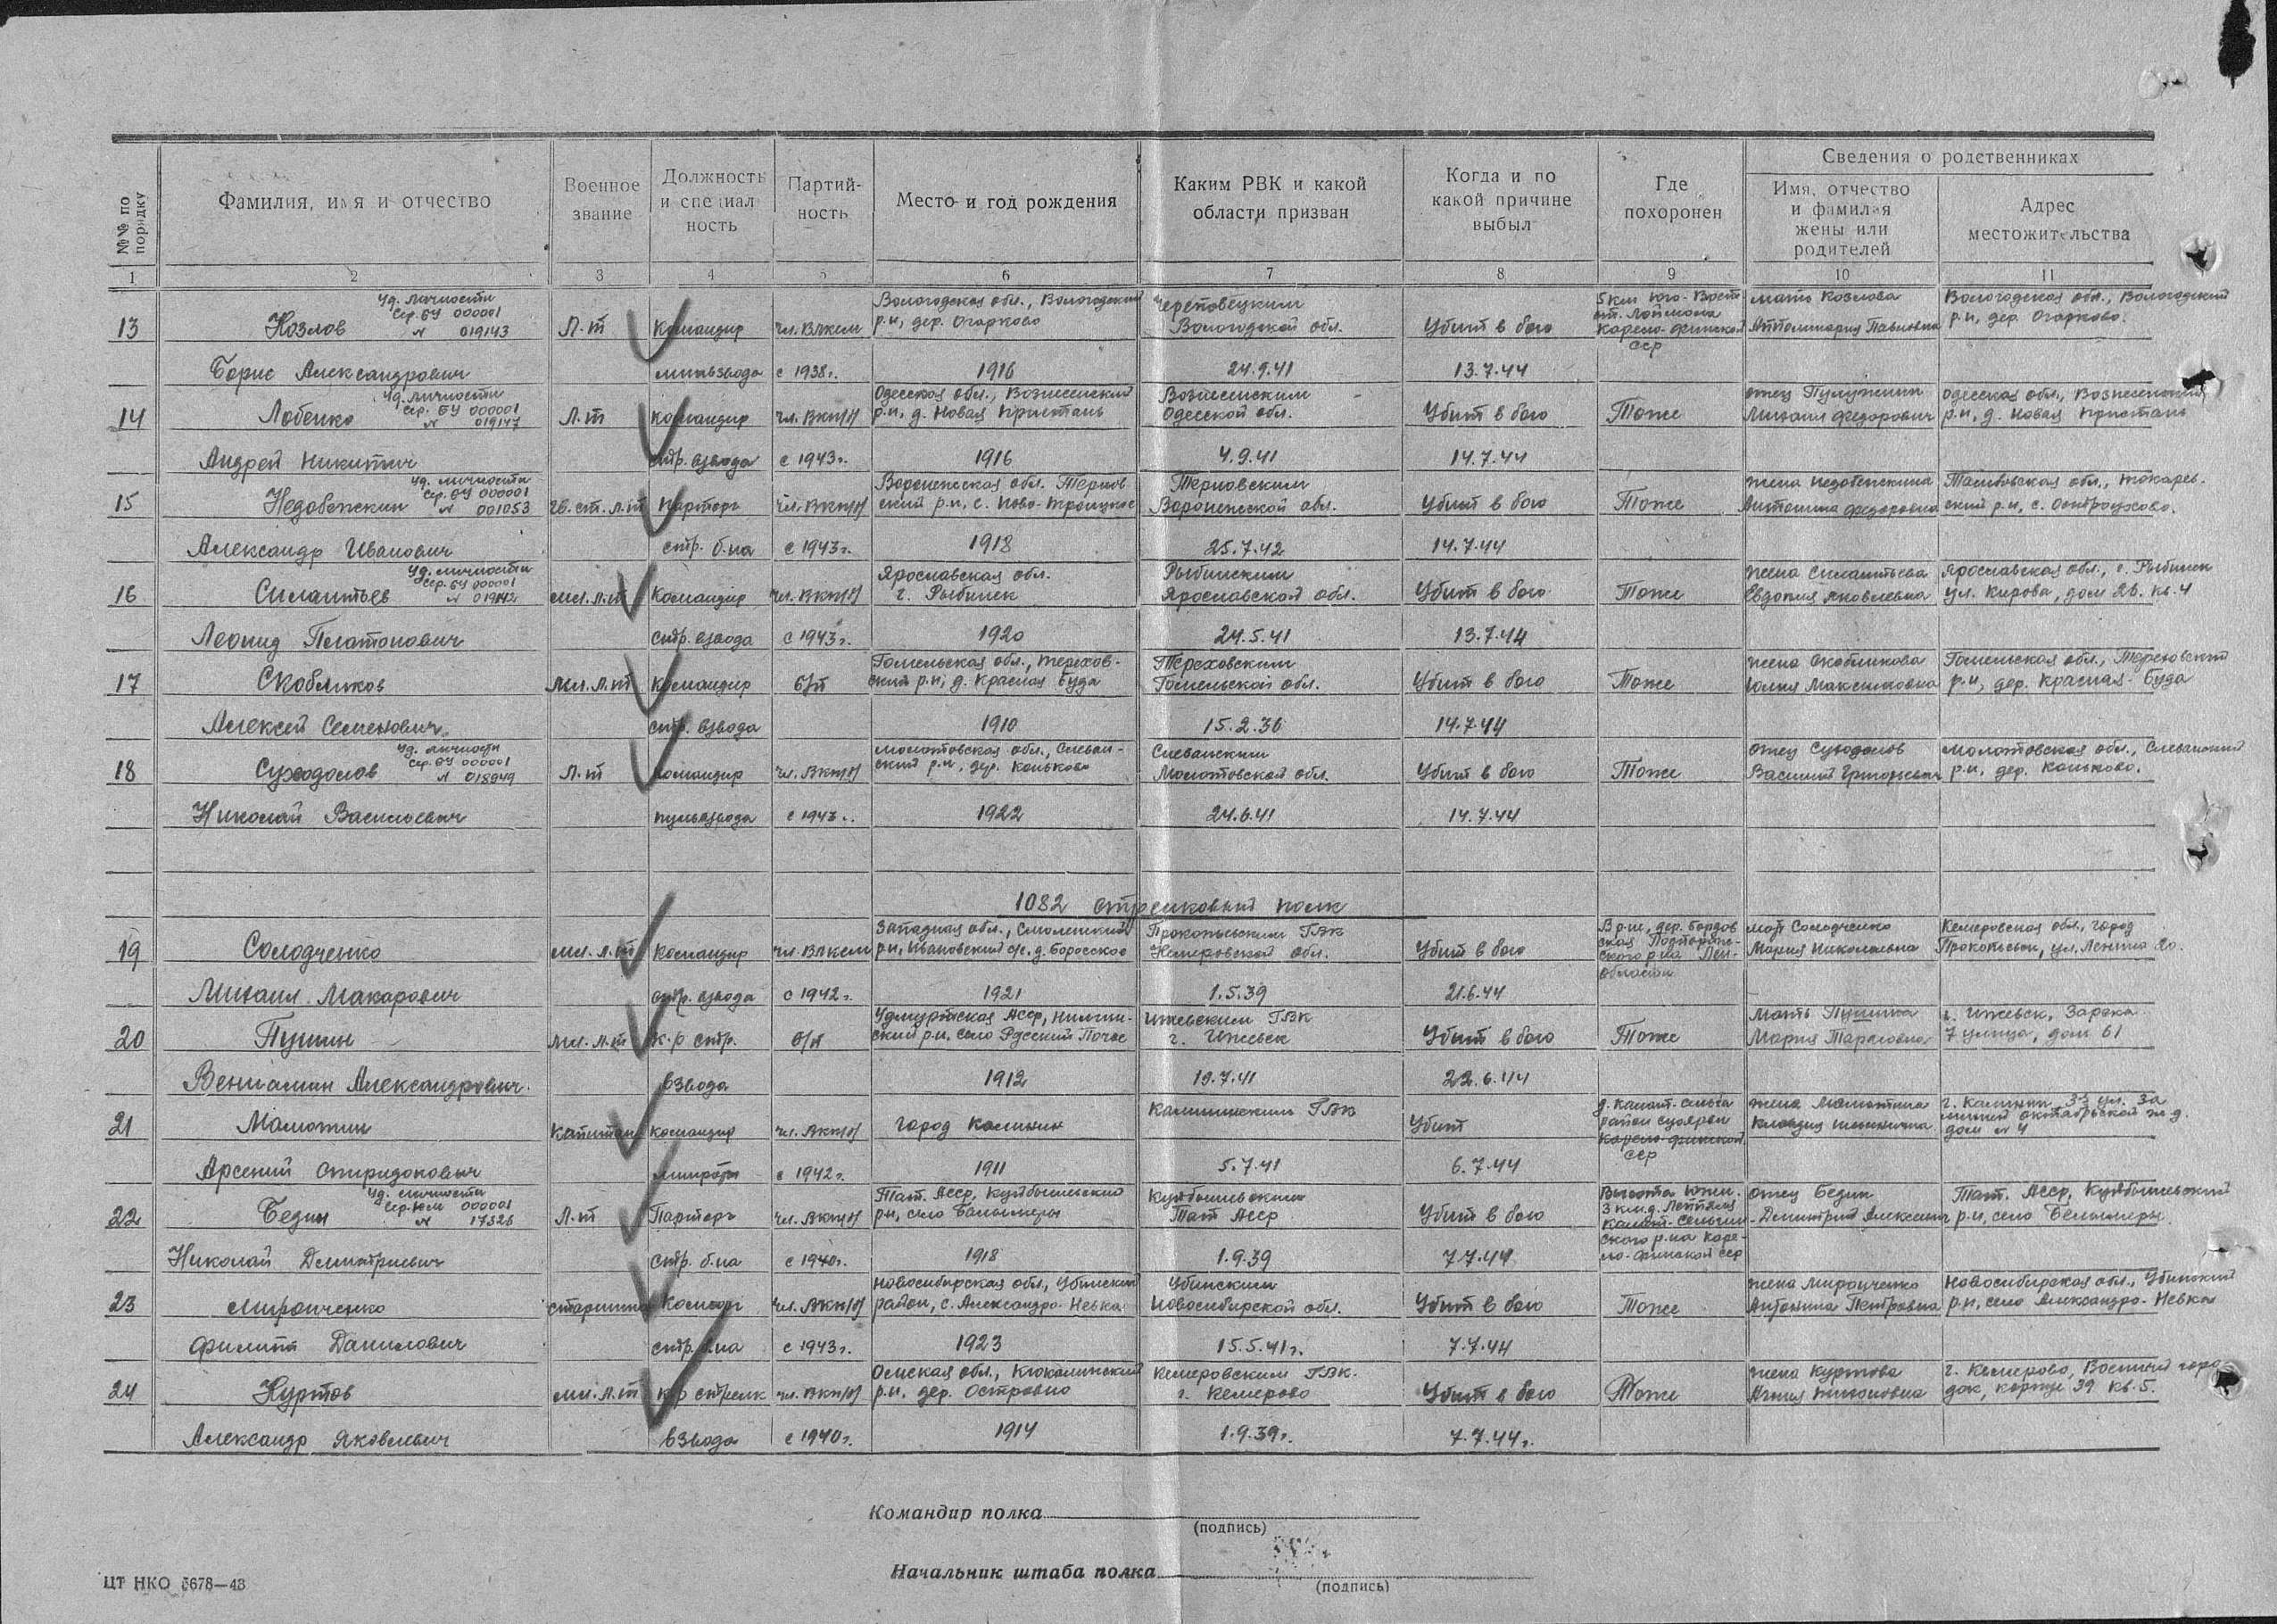 №№ по порядку
Фамилия, имя и отчество
Военное звание
Должность и специальность
Партийность
Место и год рождения
Каким РВК и какой области призван
Когда и по какой причине выбыл
Где похоронен
Сведения о родственниках
Имя, отчество и фамилия жены или родителей
Адрес местожительства
1 2 3 4 5 6 7 8 9 10 11
Уд. личности Вологодская обл., Вологодский Череповецким 5 км юго-вост. мать Козлова Вологодская обл., Вологодский
сер. БУ 000001
13 Козлов № 019143 Л-т Командир чл. ВЛКСМ р-н, дер. Огарково Вологодской обл. Убит в бою ст. Лоймола Карело-Финской ССР Павловна р-н, дер. Огарково.
Борис Александрович минвзвода с 1938г. 1916 24.9.41 13.7.44
Уд. личности Одесская обл., Вознесенский Вознесенским отец одесская обл., Вознесенский
сер. БУ 000001
14 Лобенко № 019147 Л-т командир чл. ВКП/б/ р-н, д. Новая Пристань Одесской обл. Убит в бою Тоже Михаил Федорович р-н, д. Новая Пристань
Андрей Никитич стр. взвода с 1943г. 1916 4.9.41 14.7.44
Уд. личности Воронежская обл. Тернов Терновским жена Тамбовская обл., токарев-
сер. БУ 000001
15 № 001053 гв. ст. л-т парторг чл. ВКП/б/ ский р-н, с. Ново-Троицкое Воронежской обл. Убит в бою Тоже Антонина Федоровна ский р-н, с.
Александр Иванович стр. б-на с 1943г. 1918 25.7.42 14.7.44
Уд. личности Ярославская обл. Рыбинским жена Силантьева Ярославская обл., г. Рыбинск
сер. БУ 000001
16 Силантьев № мл. л-т Командир чл. ВКП/б/ г. Рыбинск Ярославской обл. Убит в бою Тоже Евдокия Яковлевна ул. Кирова, дом 26. кв. 4
Леонид Платонович стр. взвода с 1943г. 1920 24.5.41 13.7.44
Гомельская обл., терехов- Тереховским жена Скобликова Гомельская обл., Тереховский
17 Скобликов мл. л-т командир б/п ский р-н, д. Красная Буда Гомельской обл. Убит в бою Тоже Юлия Максимовна р-н, дер. Красная-Буда
Алексей Семенович стр. взвода 1910 15.2.36 14.7.44
Уд. личности молотовская обл., отец Суходолов молотовская обл.,
сер. БУ 000001
18 Суходолов № 018949 Л-т командир чл. ВКП/б/ ский р-н, дер. Коньково Молотовской обл. Убит в бою Тоже Василий Григорьевич р-н, дер. Коньково.
Николай Васильевич пульвзвода с 1943г. 1922 24.6.41 14.7.44
1082 стрелковый полк
Западная обл., Смоленский Прокопьевским ГВК В р-не, дер. мать Солодченко Кемеровская обл., город
19 Солодченко мл. л-т командир чл. ВЛКСМ р-н, Ивановский с/с, д. Кемеровской обл. Убит в бою Подпорож-ского р-на Лен-области Мария Николаевна Прокопьевск, ул. Ленина 20.
Михаил Макарович стр. взвода с 1942г. 1921 1.5.39 21.6.44
Удмуртская АССР, Ижевским ГВК мать г. Ижевск, Зарека
20 Пушин мл. л-т к-р стр. б/п ский р-н, село Русский г. Ижевск Убит в бою Тоже Мария Тарасовна 7 улица, дом 61
Вениамин Александрович взвода 1912 19.7.41 22.6.44
Калининским ГВК район Суоярви жена Мамотина г. Калинин,
21 Мамотин капитан командир чл. ВКП/б/ город Калинин Убит Карело-Финской ССР Клавдия линией октябрьской ж.д. дом № 4
Арсений Спиридонович минроты с 1942г. 1911 5.7.41 6.7.44
Уд. личности Тат. АССР, Куйбышевский Куйбышевским Высота отец Бедин Тат. АССР, Куйбышевский
000001
22 Бедин № 17326 Л-т Парторг чл. ВКП/б/ р-н, село Тат АССР Убит в бою 3 км. д. ского р-на Каре-ло-Финской ССР Дмитрий Алексеевич р-н, село
Николай Дмитриевич стр. б-на с 1940г. 1918 1.9.39 7.7.44
Новосибирская обл., Убинский Убинским жена Миронченко Новосибирская обл., Убинский
23 Миронченко старшина Комсорг чл. ВКП/б/ район, с. Александро-Невка Новосибирской обл. Убит в бою Тоже Антонина Петровна р-н, село Александро-Невка
Филипп Данилович стр. б-на с 1943г. 1923 15.5.41г. 7.7.44
Омская обл., Кемеровским ГВК. жена Куртова г. Кемерово, Военный горо
24 Куртов мл. л-т к-р стрелк чл. ВКП/б/ р-н, дер. Островно г. Кемерово Убит в бою Тоже док, корпус 39 кв. 5.
Александр Яковлевич взвода с 1940г. 1914 1.9.39г. 7.7.44г.
Командир полка
(подпись)
Начальник штаба полка
(подпись)
ЦТ НКО 5678—43